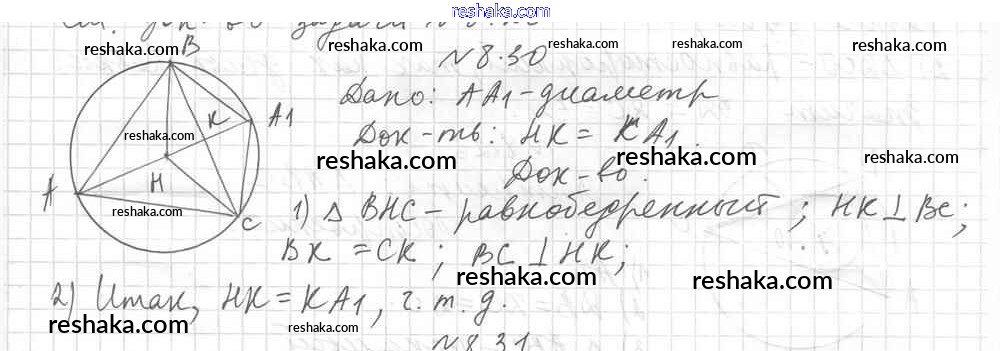 reshaka.com
№8.30
Дано: AA1-диаметр
Док-ть: HK = KA1.
Док-во:
1) Δ BHC - равнобедренный; HK⊥BC;
BK = CK; BC⊥HK;
2) Итак, HK = KA1, ч.т.д.
№8.31
B
K
A1
H
A
C
reshaka.com
reshaka.com
reshaka.com
reshaka.com
reshaka.com
reshaka.com
reshaka.com
reshaka.com
reshaka.com
reshaka.com
reshaka.com
reshaka.com